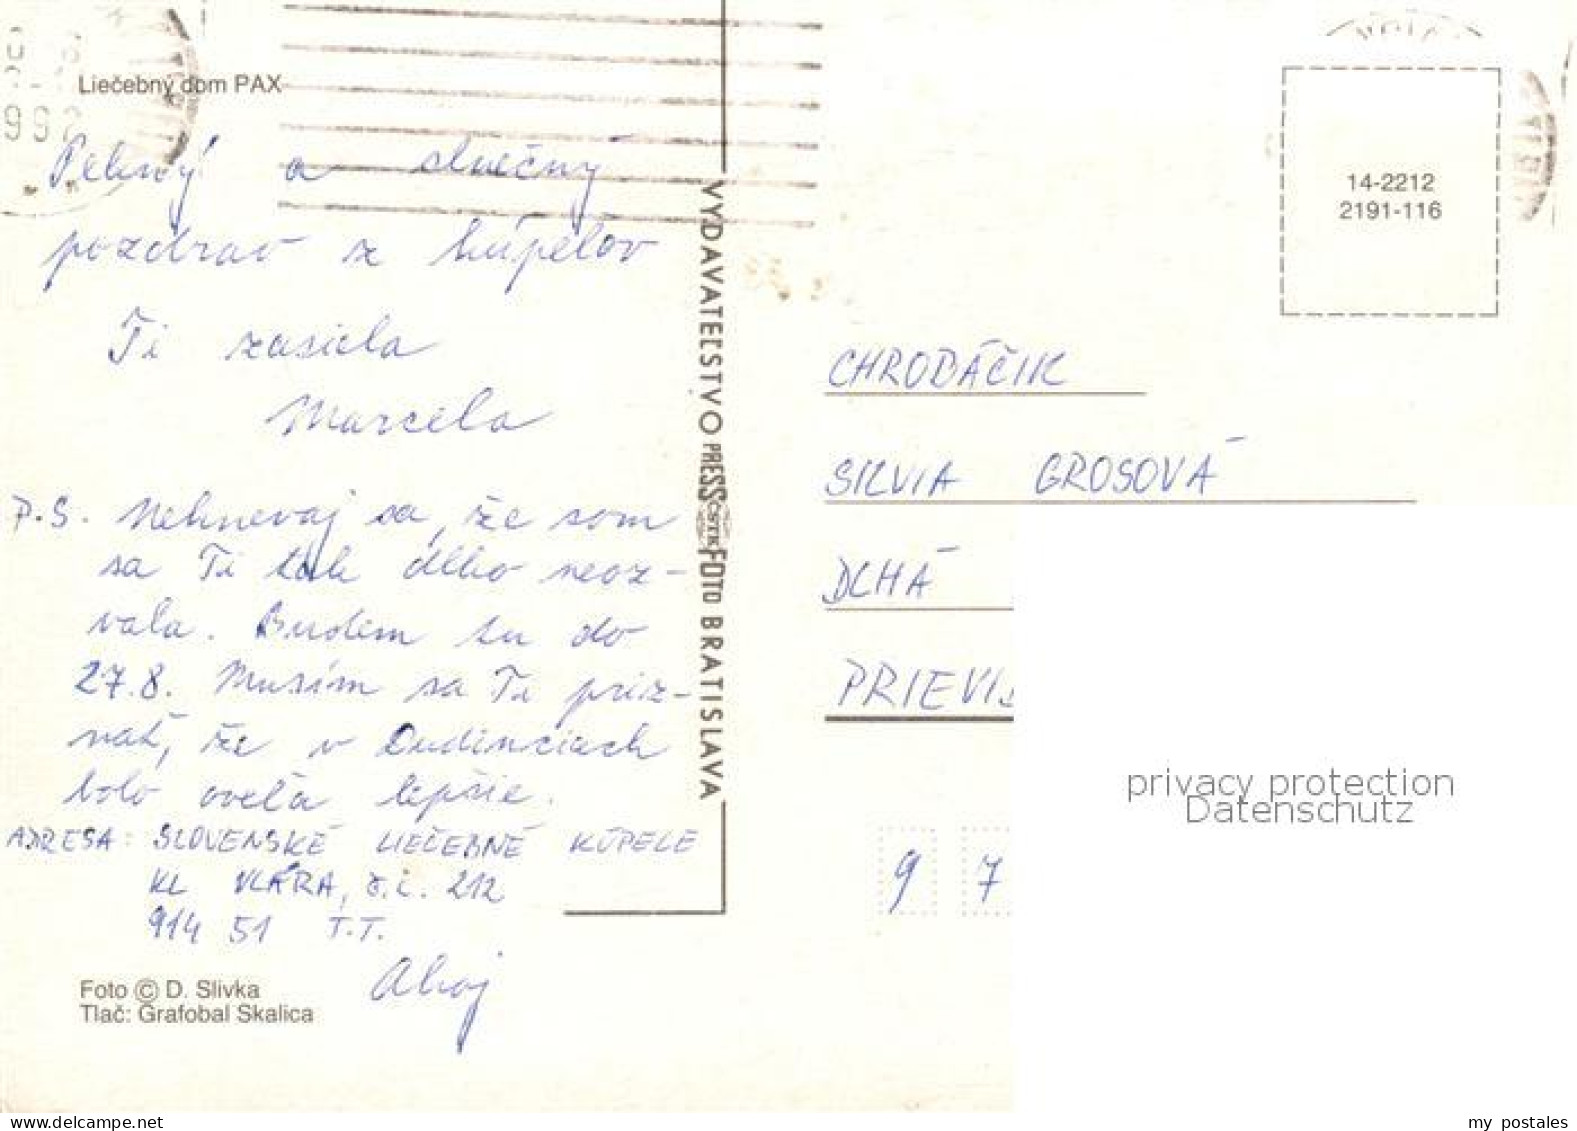 Liečebný dom PAX
Pekný a slnečný
pozdrav z kúpeľov
Ti zasiela
Marcela
P.S. Nehnevaj sa, že som
sa Ti tak dlho neoz-
vala. Budem tu do
27.8. Musím sa Ti priz-
nať, že v Dudinciach
bolo oveľa lepšie.
ADRESA: SLOVENSKÉ LIEČEBNÉ KÚPELE
KL VLÁRA, č.i. 212
914 51 T.T.
Ahoj
Foto © D. Slivka
Tlač: Grafobal Skalica
VYDAVATEĽSTVO PRESSFOTO BRATISLAVA
ČSTK
14-2212
2191-116
CHROBÁČIK
SILVIA GROSOVÁ
DLHÁ
PRIEVI
9 7
privacy protection
Datenschutz
my postales